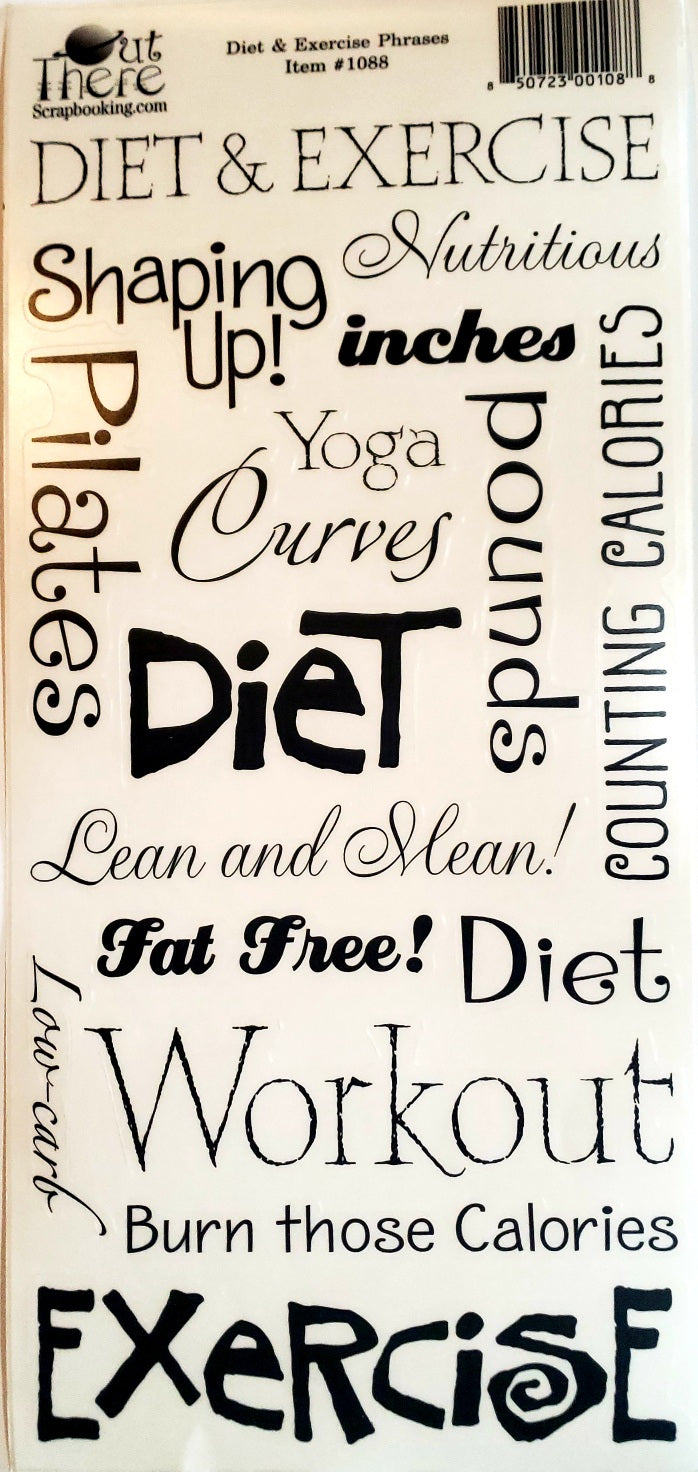 Out
There
Scrapbooking.com
Diet & Exercise Phrases
Item #1088
8 50723 00108 8
DIET & EXERCISE
Shaping
Up!
Nutritious
inches
Pilates
Yoga
pounds
COUNTING CALORIES
Curves
DieT
Lean and Mean!
Fat Free!
Diet
Low-carb
Workout
Burn those Calories
EXeRCiSE